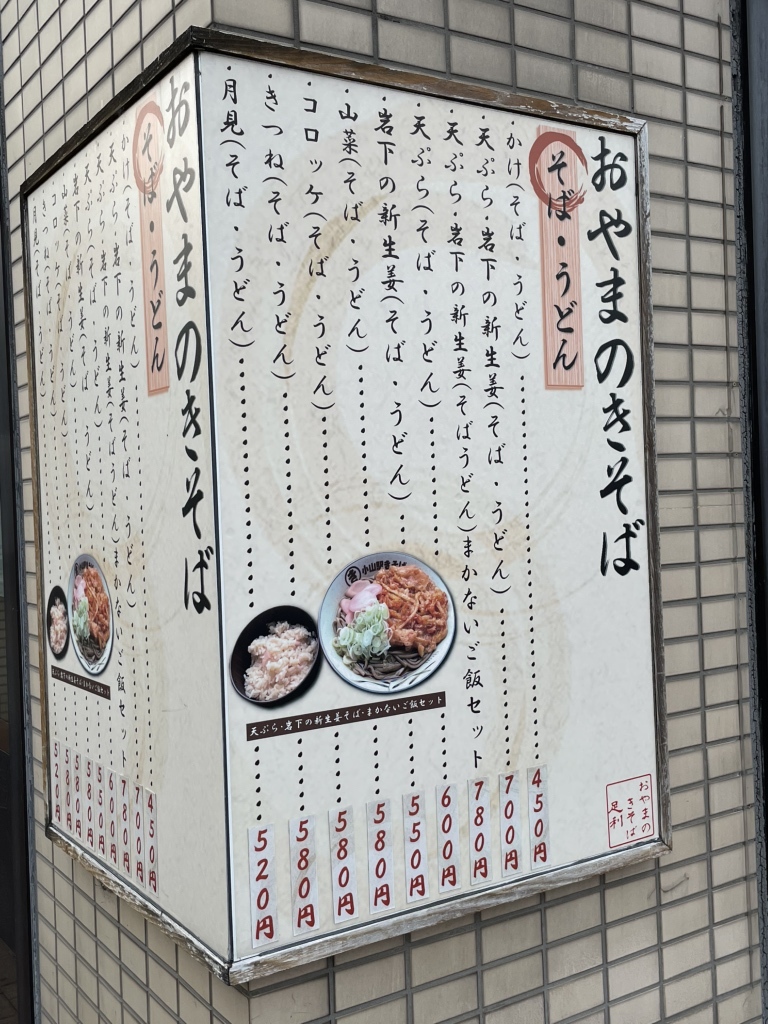 おやまのきそば
そば・うどん
かけ(そば・うどん) 450円
天ぷら・岩下の新生姜(そば・うどん) 700円
天ぷら・岩下の新生姜(そばうどん)まかないご飯セット 780円
天ぷら(そば・うどん) 600円
岩下の新生姜(そば・うどん) 550円
山菜(そば・うどん) 580円
コロッケ(そば・うどん) 580円
きつね(そば・うどん) 580円
月見(そば・うどん) 520円
小山駅きそば
天ぷら・岩下の新生姜そば・まかないご飯セット
おやまの
きそば
足利
おやまのきそば
そば・うどん
かけ(そば・うどん) 450円
天ぷら・岩下の新生姜(そば・うどん) 700円
天ぷら・岩下の新生姜(そばうどん)まかないご飯セット 780円
天ぷら(そば・うどん) 600円
岩下の新生姜(そば・うどん) 550円
山菜(そば・うどん) 580円
コロッケ(そば・うどん) 580円
きつね(そば・うどん) 580円
月見(そば・うどん) 520円
天ぷら・岩下の新生姜そば・まかないご飯セット